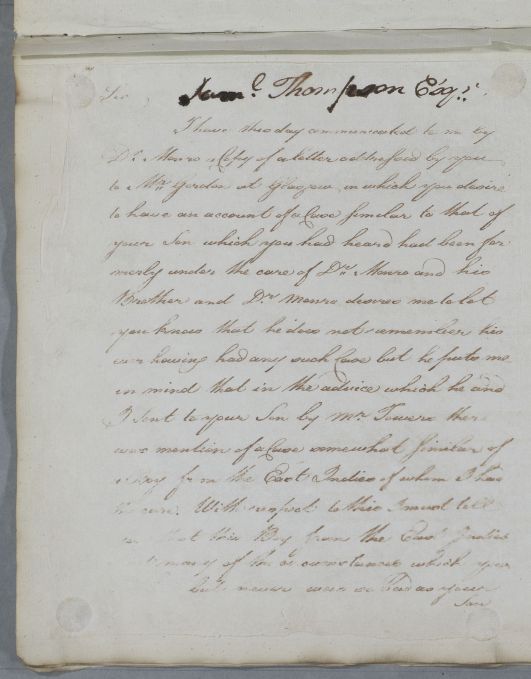 Saml. Thompson Esqr.
Sir,
I have this day communicated to me by
Dr. Monro a Copy of a letter addressed by you
to Mr. Gordon at Glasgow in which you desire
to have an account of a Case similar to that of
your Son which you had heard had been for
merly under the care of Dr. Monro and his
Brother and Dr. Monro desires me to let
you know that he does not remember his
ever having had any such Case but he puts me
in mind that in the advice which he and
I sent to your Son by Mr. Towers there
was mention of a Case somewhat similar of
a Boy from the East Indies of whom I had
the care. With respect to this I must tell
that this Boy from the East Indies
many of the circumstances which your
but never was so bad as your
Son